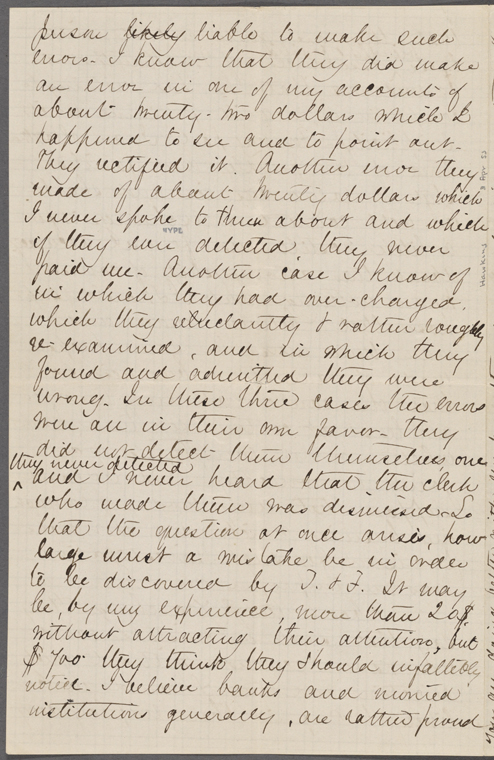 person likely liable to make such
errors. I know that they did make
an error in one of my accounts of
about twenty-two dollars which I
happened to see and to point out.
They rectified it. Another error they
made of about twenty dollars which
I never spoke to them about and which
NYPL
if they ever detected they never
paid me. Another case I know of
in which they had over-charged,
which they reluctantly & rather roughly
re-examined, and in which they
found and admitted they were
wrong. In these three cases the errors
were all in their own favor. They
did not detect them themselves, one
they never detected
and I never heard that the clerk
who made them was dismissed. So
that the question at once arises, how
large must a mistake be in order
to be discovered by T. & F. It may
be, by my experience, more than 20$
without attracting their attention, but
$700 they think they should infallibly
notice. I believe banks and monied
institutions generally, are rather proud